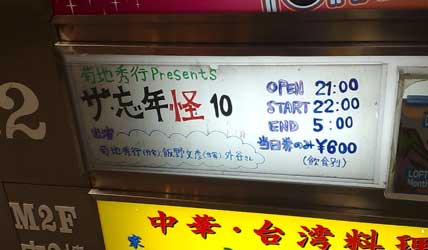 菊地秀行Presents
ザ・忘年怪 10
出演
菊地秀行(作家) 飯野文彦(作家) 外谷さん
OPEN 21:00
START 22:00
END 5:00
当日券のみ ¥600
(飲食別)
2
M2F
LOFT
Month
中華・台湾料理